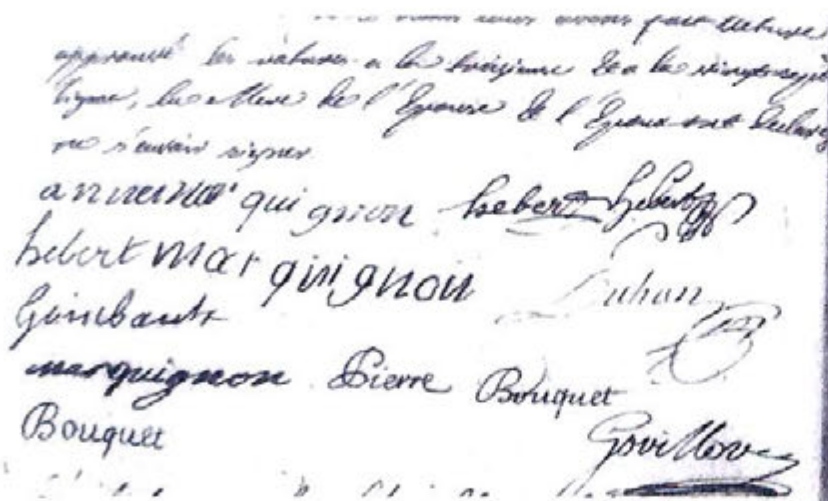 avons fait lecture
approuvé les ratures a la troisieme & a la vingt sept
ligne, la Mere de l'Epouse & l'Epoux ont declaré
ne s'avoir signer
anne mar quignon hebert hebert
hebert mar quignon Duhan
Gimbault
marquignon Pierre Bouquet
Bouquet